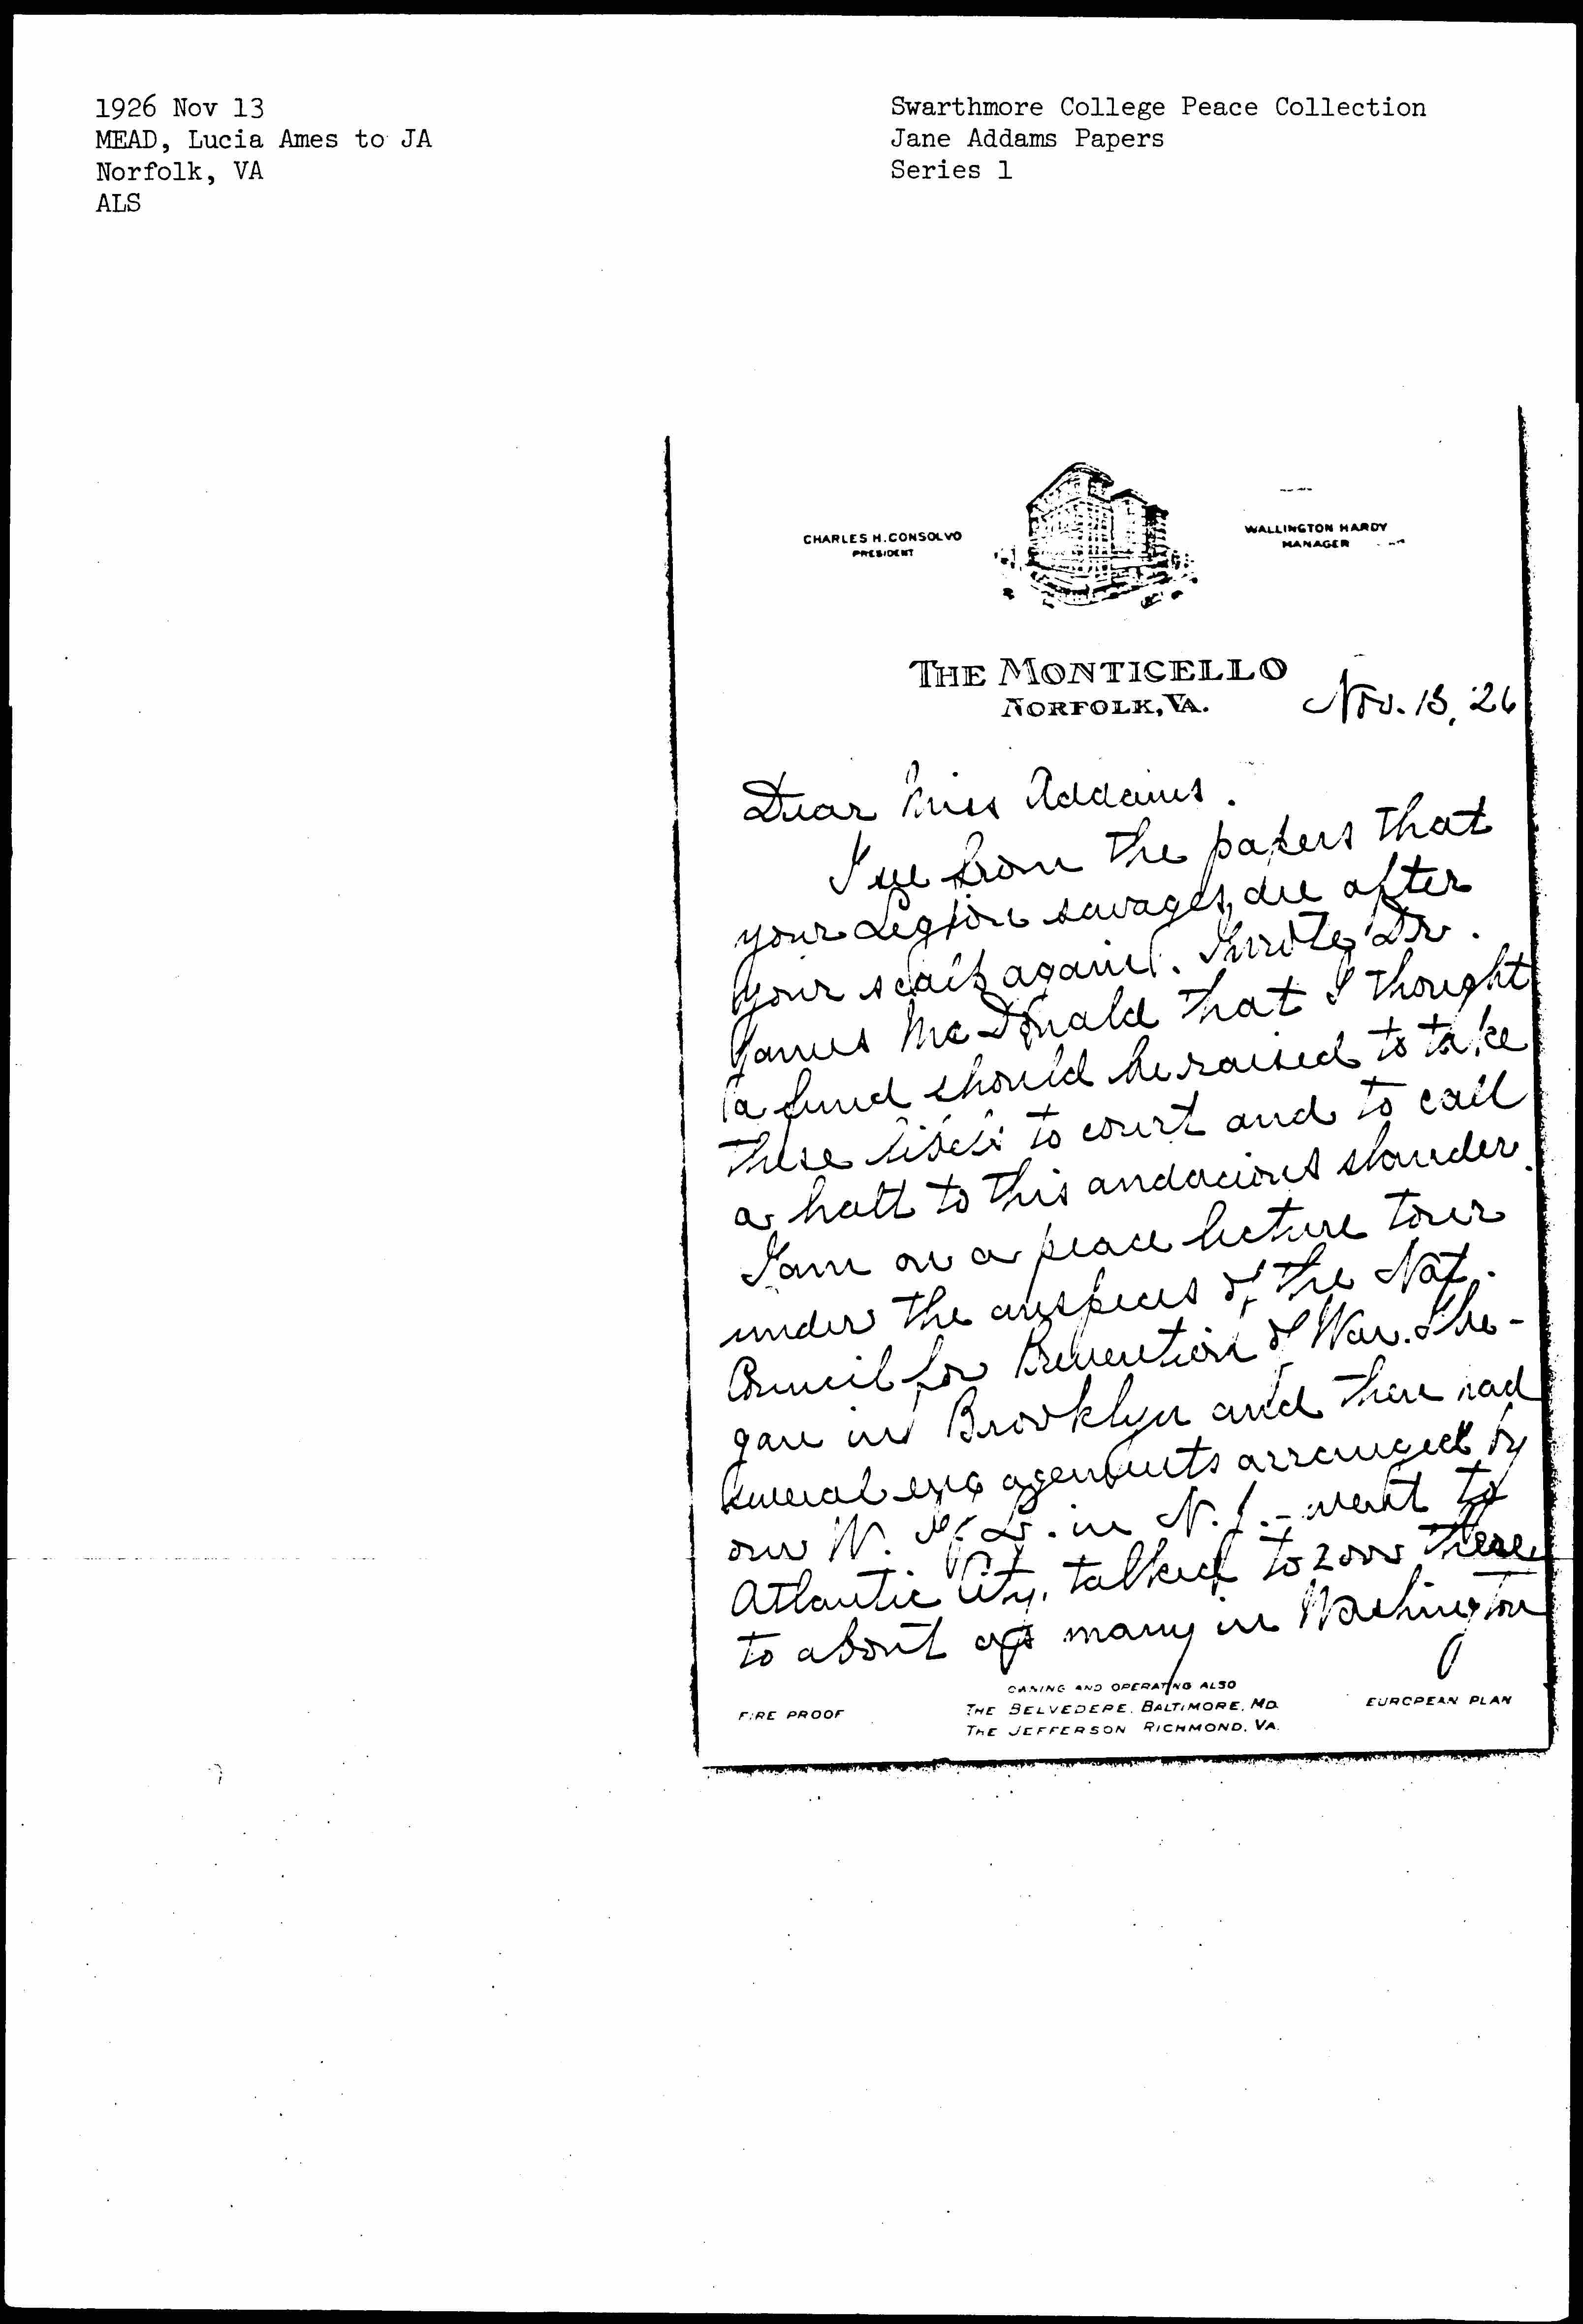 1926 Nov 13
MEAD, Lucia Ames to JA
Norfolk, VA
ALS
Swarthmore College Peace Collection
Jane Addams Papers
Series 1
CHARLES H. CONSOLVO
PRESIDENT
WALLINGTON HARDY
MANAGER
THE MONTICELLO
NORFOLK, VA.
Nov. 13, 26
Dear Miss Addams.
I see from the papers that
your Legion savages, are after
your scalp again. I wrote Dr.
James McDonald that I thought
a fund should be raised to take
these libels to court and to call
a halt to this audacious slander.
I am on a peace lecture tour
under the auspices of the Nat.
Council for Prevention of War. I be-
gan in Brooklyn and then had
several engagements arranged by
our W. I. L. in N. J. - went to
Atlantic City, talked to 2000 there
to about as many in Washington
FIRE PROOF
OWNING AND OPERATING ALSO
THE BELVEDERE, BALTIMORE, MD.
THE JEFFERSON RICHMOND, VA.
EUROPEAN PLAN